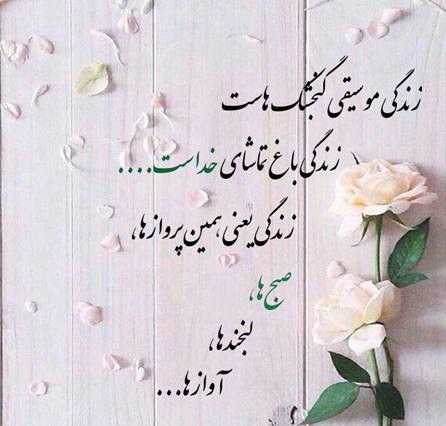 زندگی موسیقی گنجشک هاست
زندگی باغ تماشای خداست....
زندگی یعنی همین پروازها،
صبح ها،
لبخندها،
آوازها...